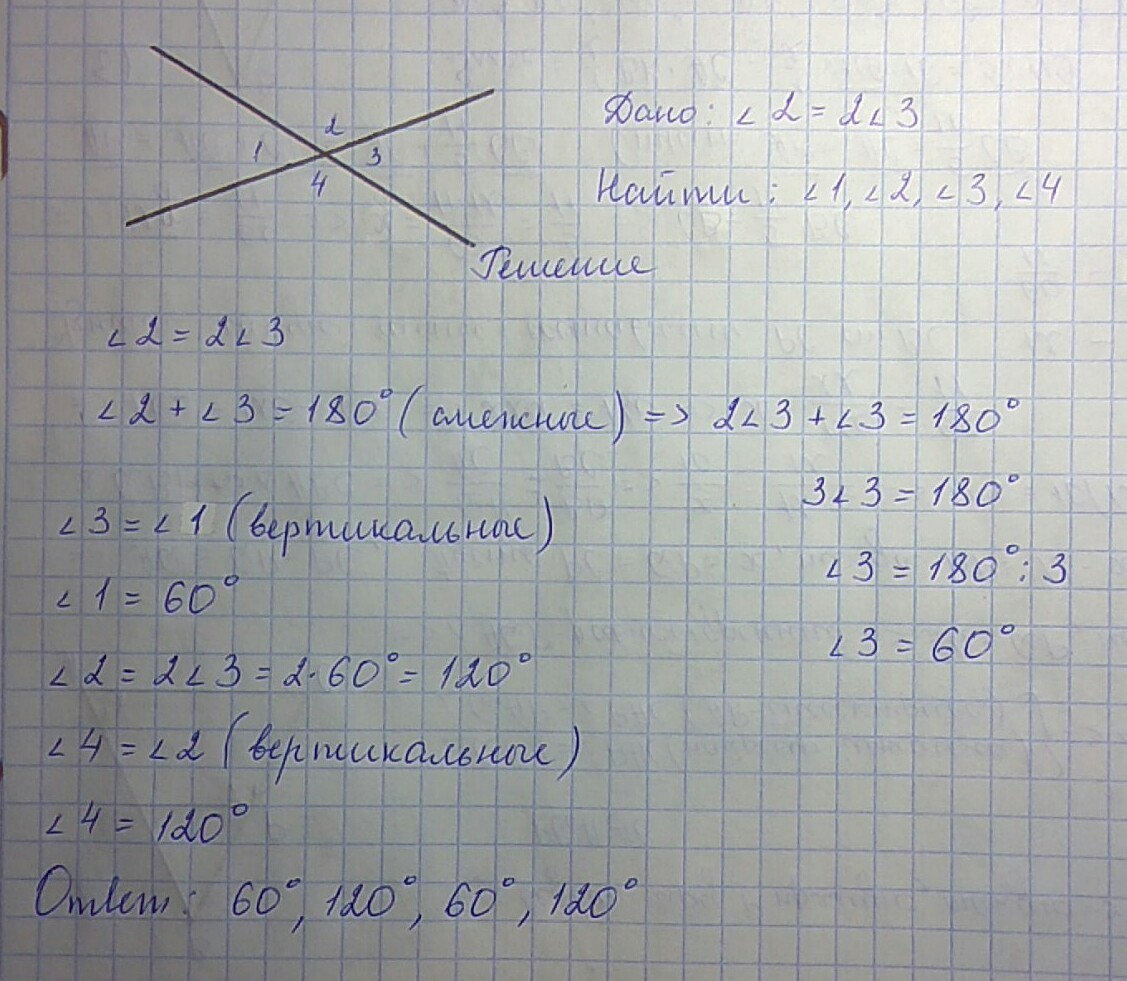 2
1
3
4
Дано: ∠2 = 2∠3
Найти: ∠1, ∠2, ∠3, ∠4
Решение
∠2 = 2∠3
∠2 + ∠3 = 180° (смежные) => 2∠3 + ∠3 = 180°
3∠3 = 180°
∠3 = 180° : 3
∠3 = 60°
∠3 = ∠1 (вертикальные)
∠1 = 60°
∠2 = 2∠3 = 2·60° = 120°
∠4 = ∠2 (вертикальные)
∠4 = 120°
Ответ: 60°, 120°, 60°, 120°